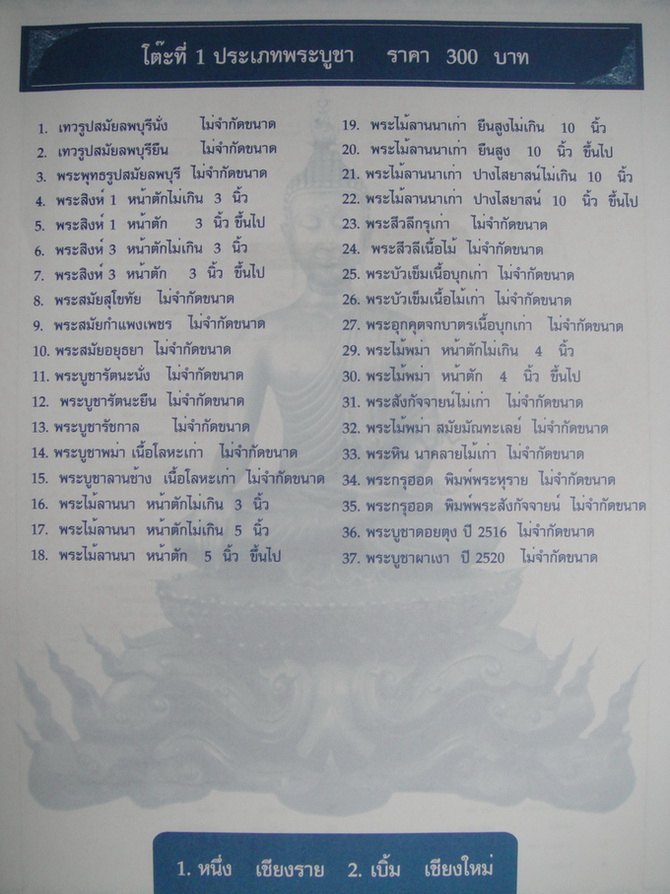 โต๊ะที่ 1 ประเภทพระบูชา ราคา 300 บาท
1. เทวรูปสมัยลพบุรีนั่ง ไม่จำกัดขนาด
2. เทวรูปสมัยลพบุรียืน ไม่จำกัดขนาด
3. พระพุทธรูปสมัยลพบุรี ไม่จำกัดขนาด
4. พระสิงห์ 1 หน้าตักไม่เกิน 3 นิ้ว
5. พระสิงห์ 1 หน้าตัก 3 นิ้ว ขึ้นไป
6. พระสิงห์ 3 หน้าตักไม่เกิน 3 นิ้ว
7. พระสิงห์ 3 หน้าตัก 3 นิ้ว ขึ้นไป
8. พระสมัยสุโขทัย ไม่จำกัดขนาด
9. พระสมัยกำแพงเพชร ไม่จำกัดขนาด
10. พระสมัยอยุธยา ไม่จำกัดขนาด
11. พระบูชารัตนะนั่ง ไม่จำกัดขนาด
12. พระบูชารัตนะยืน ไม่จำกัดขนาด
13. พระบูชารัชกาล ไม่จำกัดขนาด
14. พระบูชาพม่า เนื้อโลหะเก่า ไม่จำกัดขนาด
15. พระบูชาลานช้าง เนื้อโลหะเก่า ไม่จำกัดขนาด
16. พระไม้ลานนา หน้าตักไม่เกิน 3 นิ้ว
17. พระไม้ลานนา หน้าตักไม่เกิน 5 นิ้ว
18. พระไม้ลานนา หน้าตัก 5 นิ้ว ขึ้นไป
19. พระไม้ลานนาเก่า ยืนสูงไม่เกิน 10 นิ้ว
20. พระไม้ลานนาเก่า ยืนสูง 10 นิ้ว ขึ้นไป
21. พระไม้ลานนาเก่า ปางไสยาสน์ไม่เกิน 10 นิ้ว
22. พระไม้ลานนาเก่า ปางไสยาสน์ 10 นิ้ว ขึ้นไป
23. พระสีวลีกรุเก่า ไม่จำกัดขนาด
24. พระสีวลีเนื้อไม้ ไม่จำกัดขนาด
25. พระบัวเข็มเนื้อบุกเก่า ไม่จำกัดขนาด
26. พระบัวเข็มเนื้อไม้เก่า ไม่จำกัดขนาด
27. พระอุกคุตจกบาตรเนื้อบุกเก่า ไม่จำกัดขนาด
29. พระไม้พม่า หน้าตักไม่เกิน 4 นิ้ว
30. พระไม้พม่า หน้าตัก 4 นิ้ว ขึ้นไป
31. พระสังกัจจายน์ไม้เก่า ไม่จำกัดขนาด
32. พระไม้พม่า สมัยมัณฑะเลย์ ไม่จำกัดขนาด
33. พระหิน นาคลายไม้เก่า ไม่จำกัดขนาด
34. พระกรุฮอด พิมพ์พระหุราย ไม่จำกัดขนาด
35. พระกรุฮอด พิมพ์พระสังกัจจายน์ ไม่จำกัดขนาด
36. พระบูชาดอยตุง ปี 2516 ไม่จำกัดขนาด
37. พระบูชาผาเงา ปี 2520 ไม่จำกัดขนาด
1. หนึ่ง เชียงราย 2. เบิ้ม เชียงใหม่